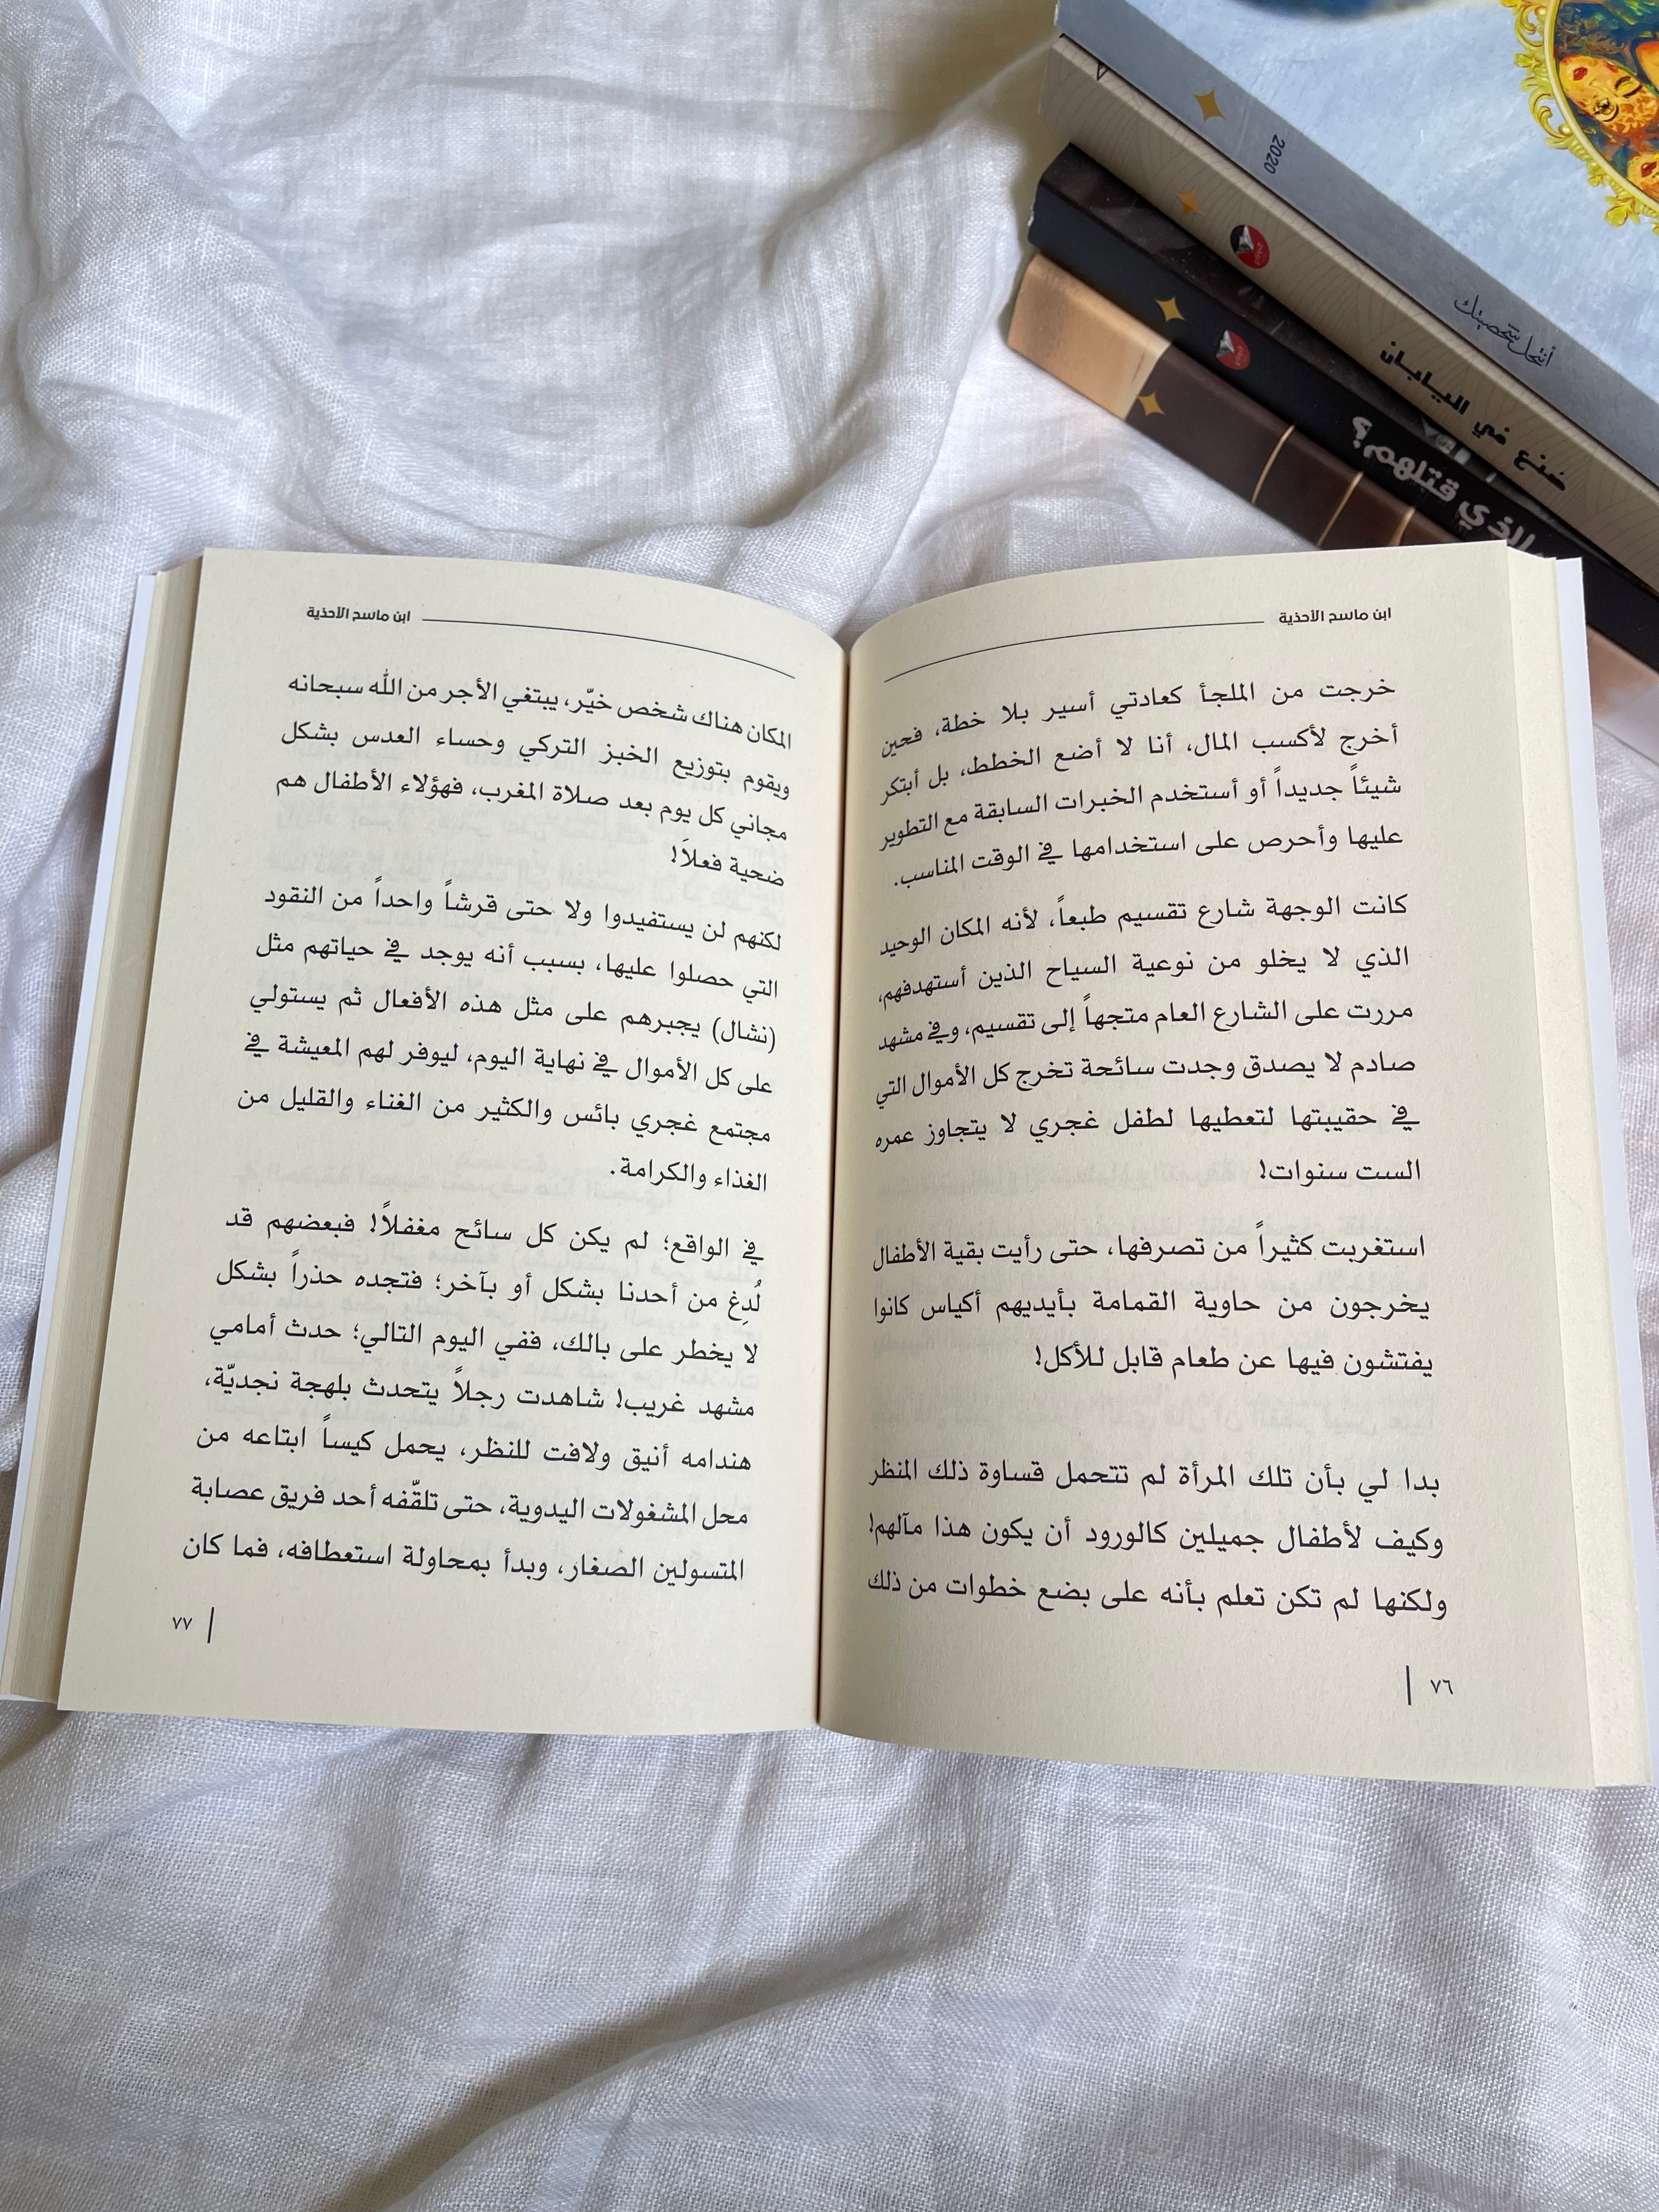 2020
أنتحل شخصيتك
صنع في اليابان
الذي قتلهم؟
ابن ماسح الأحذية
خرجت من الملجأ كعادتي أسير بلا خطة، فحين
أخرج لأكسب المال، أنا لا أضع الخطط، بل أبتكر
شيئاً جديداً أو أستخدم الخبرات السابقة مع التطوير
عليها وأحرص على استخدامها في الوقت المناسب.
كانت الوجهة شارع تقسيم طبعاً، لأنه المكان الوحيد
الذي لا يخلو من نوعية السياح الذين أستهدفهم،
مررت على الشارع العام متجهاً إلى تقسيم، وفي مشهد
صادم لا يصدق وجدت سائحة تخرج كل الأموال التي
في حقيبتها لتعطيها لطفل غجري لا يتجاوز عمره
الست سنوات!
استغربت كثيراً من تصرفها، حتى رأيت بقية الأطفال
يخرجون من حاوية القمامة بأيديهم أكياس كانوا
يفتشون فيها عن طعام قابل للأكل!
بدا لي بأن تلك المرأة لم تتحمل قساوة ذلك المنظر
وكيف لأطفال جميلين كالورود أن يكون هذا مآلهم!
ولكنها لم تكن تعلم بأنه على بضع خطوات من ذلك
٧٦
ابن ماسح الأحذية
المكان هناك شخص خيّر، يبتغي الأجر من الله سبحانه
ويقوم بتوزيع الخبز التركي وحساء العدس بشكل
مجاني كل يوم بعد صلاة المغرب، فهؤلاء الأطفال هم
ضحية فعلاً!
لكنهم لن يستفيدوا ولا حتى قرشاً واحداً من النقود
التي حصلوا عليها، بسبب أنه يوجد في حياتهم مثل
(نشال) يجبرهم على مثل هذه الأفعال ثم يستولي
على كل الأموال في نهاية اليوم، ليوفر لهم المعيشة في
مجتمع غجري بائس والكثير من الغناء والقليل من
الغذاء والكرامة.
في الواقع؛ لم يكن كل سائح مغفلاً! فبعضهم قد
لُدِغ من أحدنا بشكل أو بآخر؛ فتجده حذراً بشكل
لا يخطر على بالك، ففي اليوم التالي؛ حدث أمامي
مشهد غريب! شاهدت رجلاً يتحدث بلهجة نجديّة،
هندامه أنيق ولافت للنظر، يحمل كيساً ابتاعه من
محل المشغولات اليدوية، حتى تلقّفه أحد فريق عصابة
المتسولين الصغار، وبدأ بمحاولة استعطافه، فما كان
٧٧